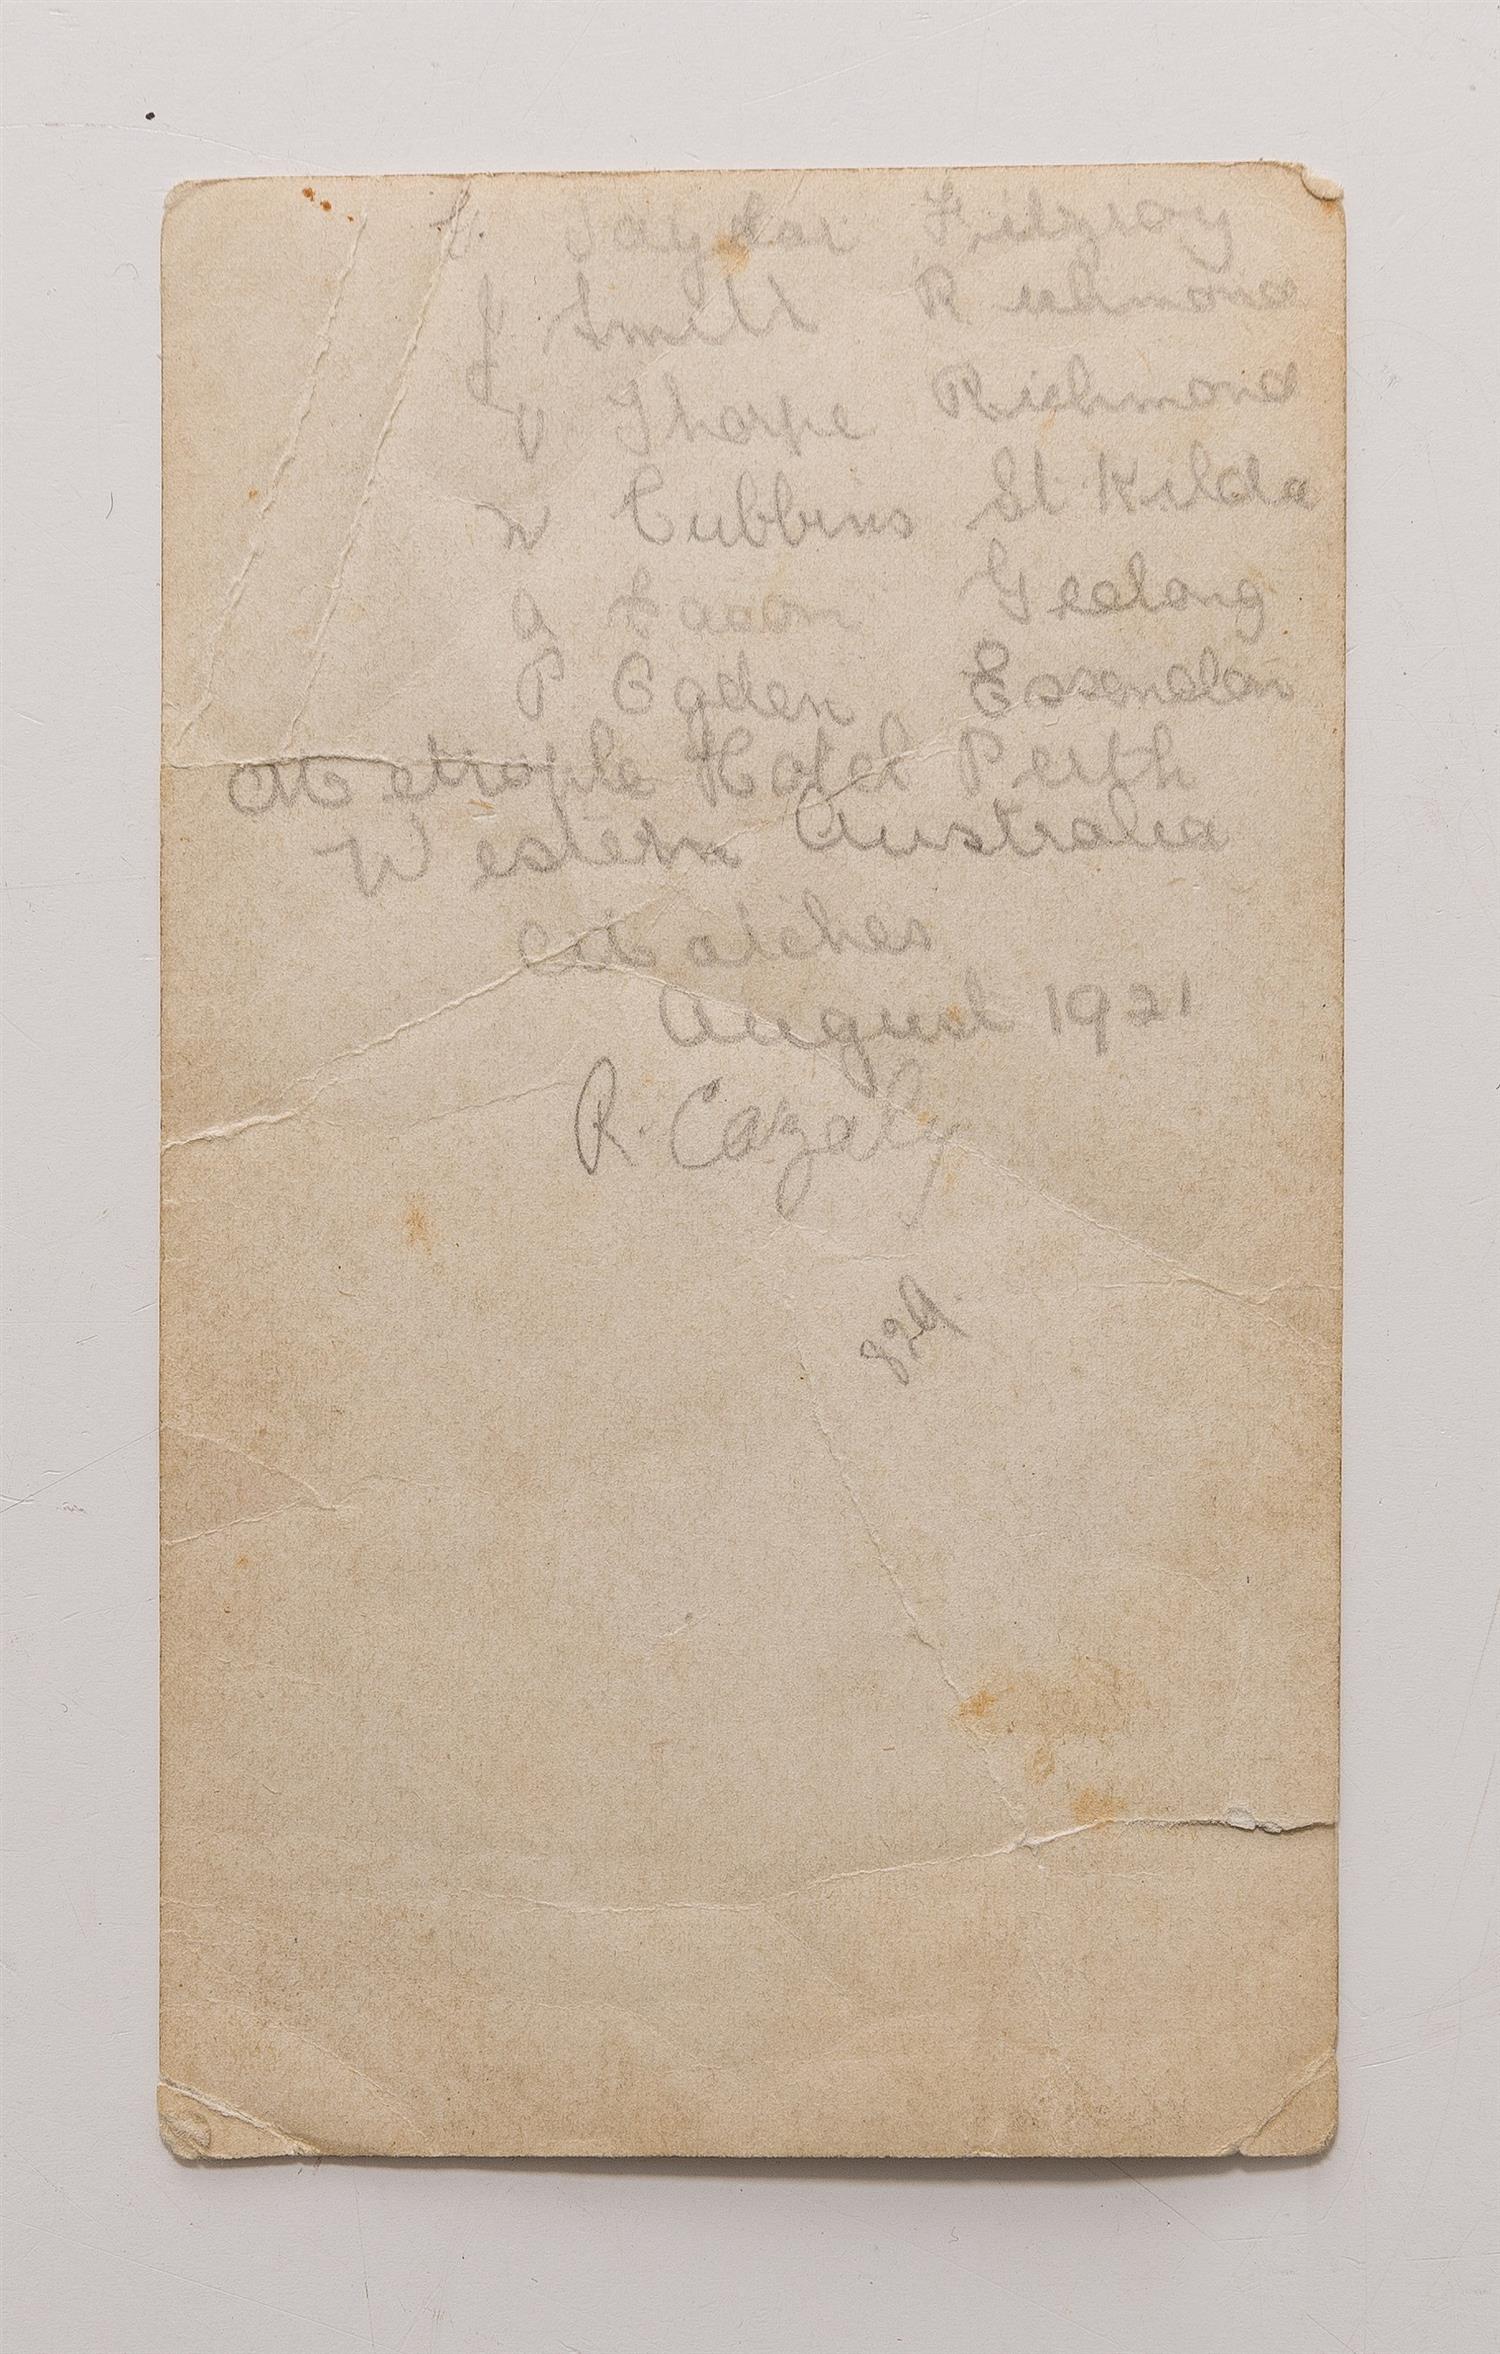 C. Taylor Fitzroy
J Smith Richmond
V Thorpe Richmond
W Cubbins St Kilda
A Eason Geelong
P Ogden Essendon
Metrople Hotel Perth
Western Australia
Matches
August 1921
R. Cazaly